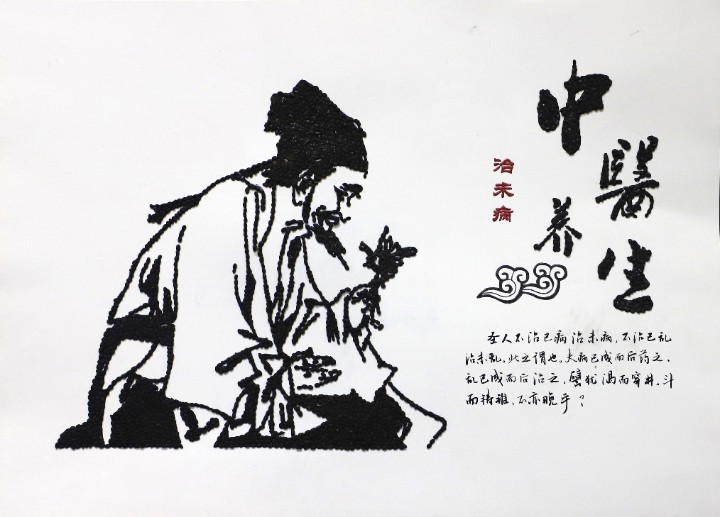 中醫养生
治未病
圣人不治已病治未病，不治已乱
治未乱，此之谓也，夫病已成而后药之，
乱已成而后治之，譬犹渴而穿井，斗
而铸锥，不亦晚乎？